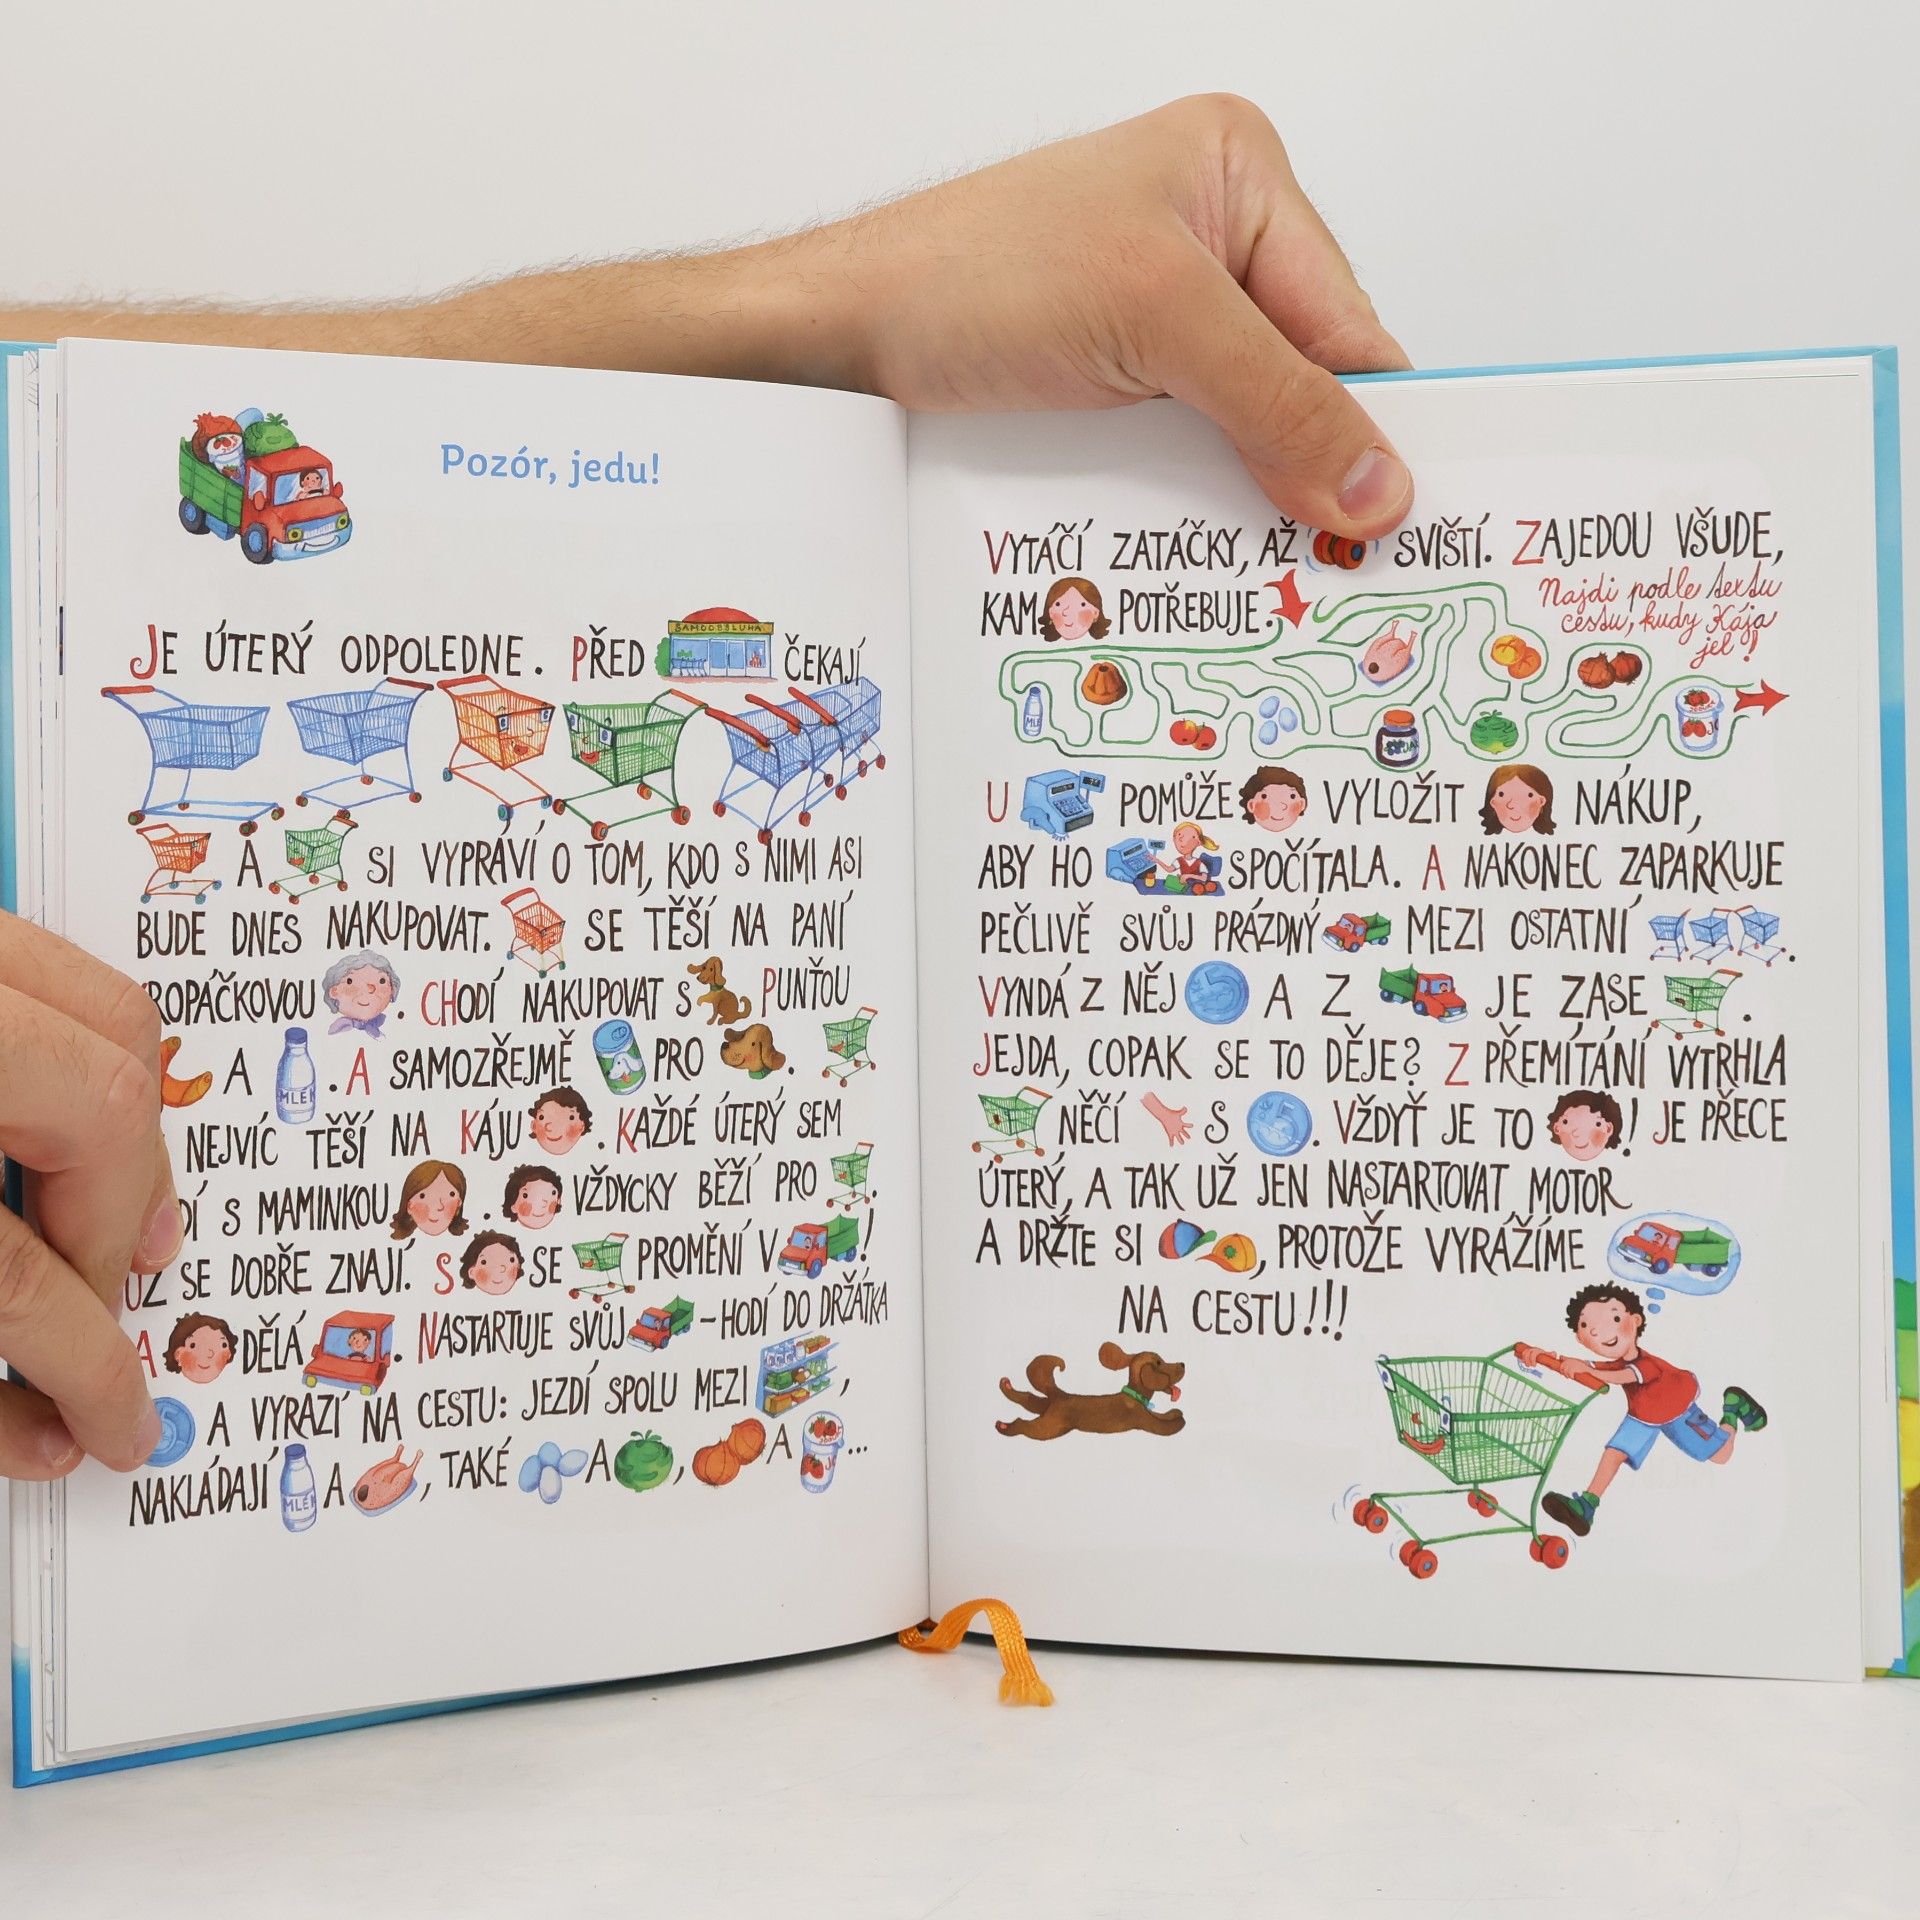 Pozór, jedu!
JE ÚTERÝ ODPOLEDNE. PŘED SAMOOBSLUHA ČEKAJÍ
A SI VYPRÁVÍ O TOM, KDO S NIMI ASI
BUDE DNES NAKUPOVAT. SE TĚŠÍ NA PANÍ
ROPÁČKOVOU . CHODÍ NAKUPOVAT S PUNŤOU
A MLÉK . A SAMOZŘEJMĚ PRO .
NEJVÍC TĚŠÍ NA KÁJU . KAŽDÉ ÚTERÝ SEM
DÍ S MAMINKOU . VŽDYCKY BĚŽÍ PRO .
UŽ SE DOBŘE ZNAJÍ. S SE PROMĚNÍ V !
A DĚLÁ . NASTARTUJE SVŮJ – HODÍ DO DRŽÁTKA
5 A VYRAZÍ NA CESTU: JEZDÍ SPOLU MEZI ,
NAKLÁDAJÍ MLÉK A , TAKÉ A , A JO ...
VYTÁČÍ ZATÁČKY, AŽ SVIŠTÍ. ZAJEDOU VŠUDE,
KAM POTŘEBUJE.
Najdi podle textu
cestu, kudy Kája
jel!
MLÉ
JAM
JOGURT
JO
U POMŮŽE VYLOŽIT NÁKUP,
ABY HO SPOČÍTALA. A NAKONEC ZAPARKUJE
PEČLIVĚ SVŮJ PRÁZDNÝ MEZI OSTATNÍ .
VYNDÁ Z NĚJ 5 A Z JE ZASE .
JEJDA, COPAK SE TO DĚJE? Z PŘEMÍTÁNÍ VYTRHLA
NĚČÍ S Kč 5 . VŽDYŤ JE TO ! JE PŘECE
ÚTERÝ, A TAK UŽ JEN NASTARTOVAT MOTOR
A DRŽTE SI , PROTOŽE VYRÁŽÍME
NA CESTU!!!